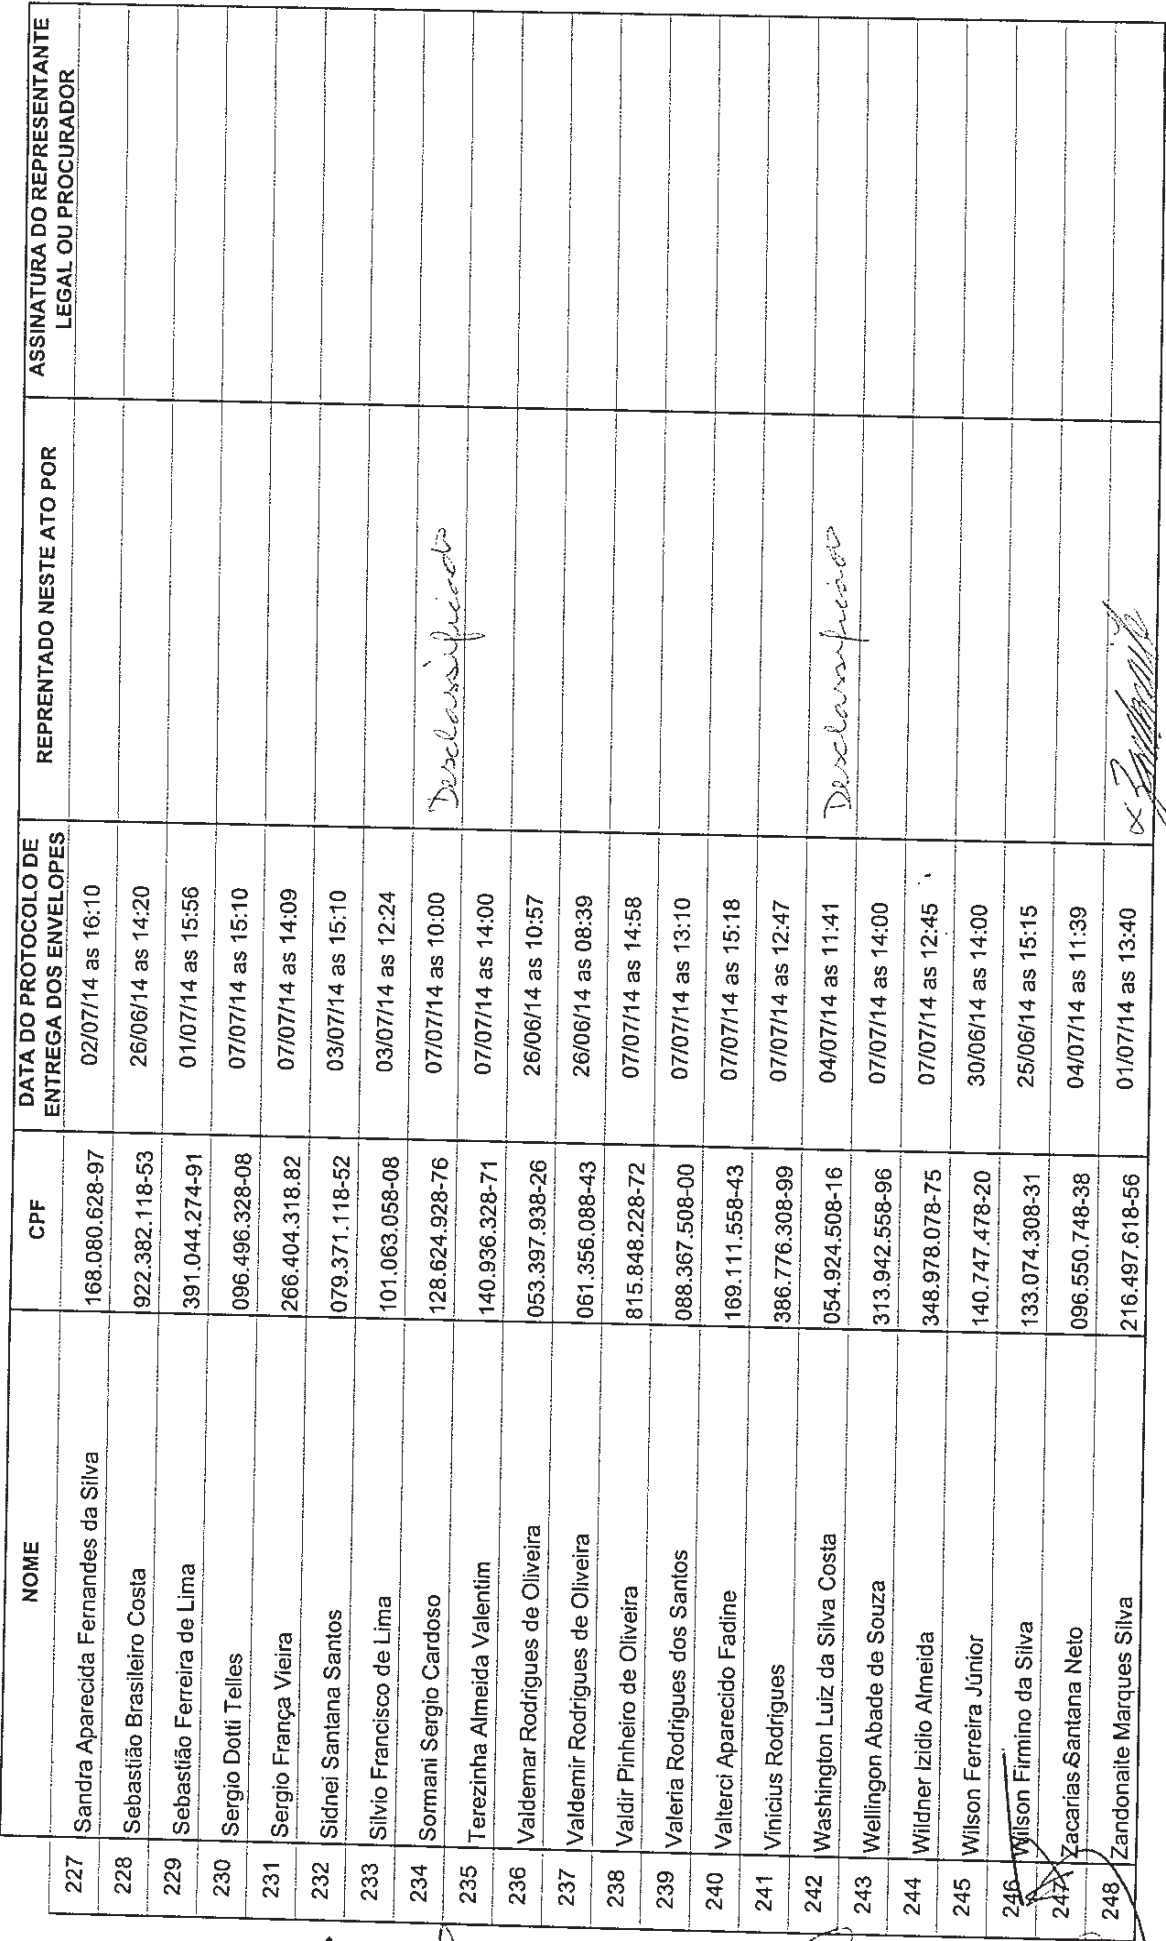 NOME CPF DATA DO PROTOCOLO DE ENTREGA DOS ENVELOPES REPRENTADO NESTE ATO POR ASSINATURA DO REPRESENTANTE LEGAL OU PROCURADOR
227 Sandra Aparecida Fernandes da Silva 168.080.628-97 02/07/14 as 16:10
228 Sebastião Brasileiro Costa 922.382.118-53 26/06/14 as 14:20
229 Sebastião Ferreira de Lima 391.044.274-91 01/07/14 as 15:56
230 Sergio Dotti Telles 096.496.328-08 07/07/14 as 15:10
231 Sergio França Vieira 266.404.318.82 07/07/14 as 14:09
232 Sidnei Santana Santos 079.371.118-52 03/07/14 as 15:10
233 Silvio Francisco de Lima 101.063.058-08 03/07/14 as 12:24
234 Sormani Sergio Cardoso 128.624.928-76 07/07/14 as 10:00 Desclassificado
235 Terezinha Almeida Valentim 140.936.328-71 07/07/14 as 14:00
236 Valdemar Rodrigues de Oliveira 053.397.938-26 26/06/14 as 10:57
237 Valdemir Rodrigues de Oliveira 061.356.088-43 26/06/14 as 08:39
238 Valdir Pinheiro de Oliveira 815.848.228-72 07/07/14 as 14:58
239 Valeria Rodrigues dos Santos 088.367.508-00 07/07/14 as 13:10
240 Valterci Aparecido Fadine 169.111.558-43 07/07/14 as 15:18
241 Vinicius Rodrigues 386.776.308-99 07/07/14 as 12:47
242 Washington Luiz da Silva Costa 054.924.508-16 04/07/14 as 11:41 Desclassificado
243 Wellingon Abade de Souza 313.942.558-96 07/07/14 as 14:00
244 Wildner Izidio Almeida 348.978.078-75 07/07/14 as 12:45
245 Wilson Ferreira Júnior 140.747.478-20 30/06/14 as 14:00
246 Wilson Firmino da Silva 133.074.308-31 25/06/14 as 15:15
247 Zacarias Santana Neto 096.550.748-38 04/07/14 as 11:39
248 Zandonaite Marques Silva 216.497.618-56 01/07/14 as 13:40